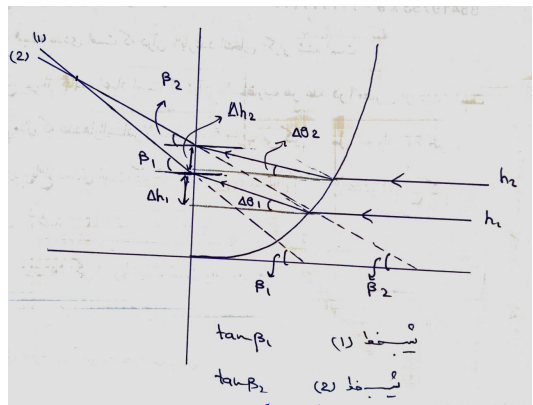 (1)
(2)
β₂
Δh₂
Δθ₂
β₁
h₂
Δh₁
Δθ₁
h₁
β₁
β₂
tanβ₁ شیب خط (1)
tanβ₂ شیب خط (2)